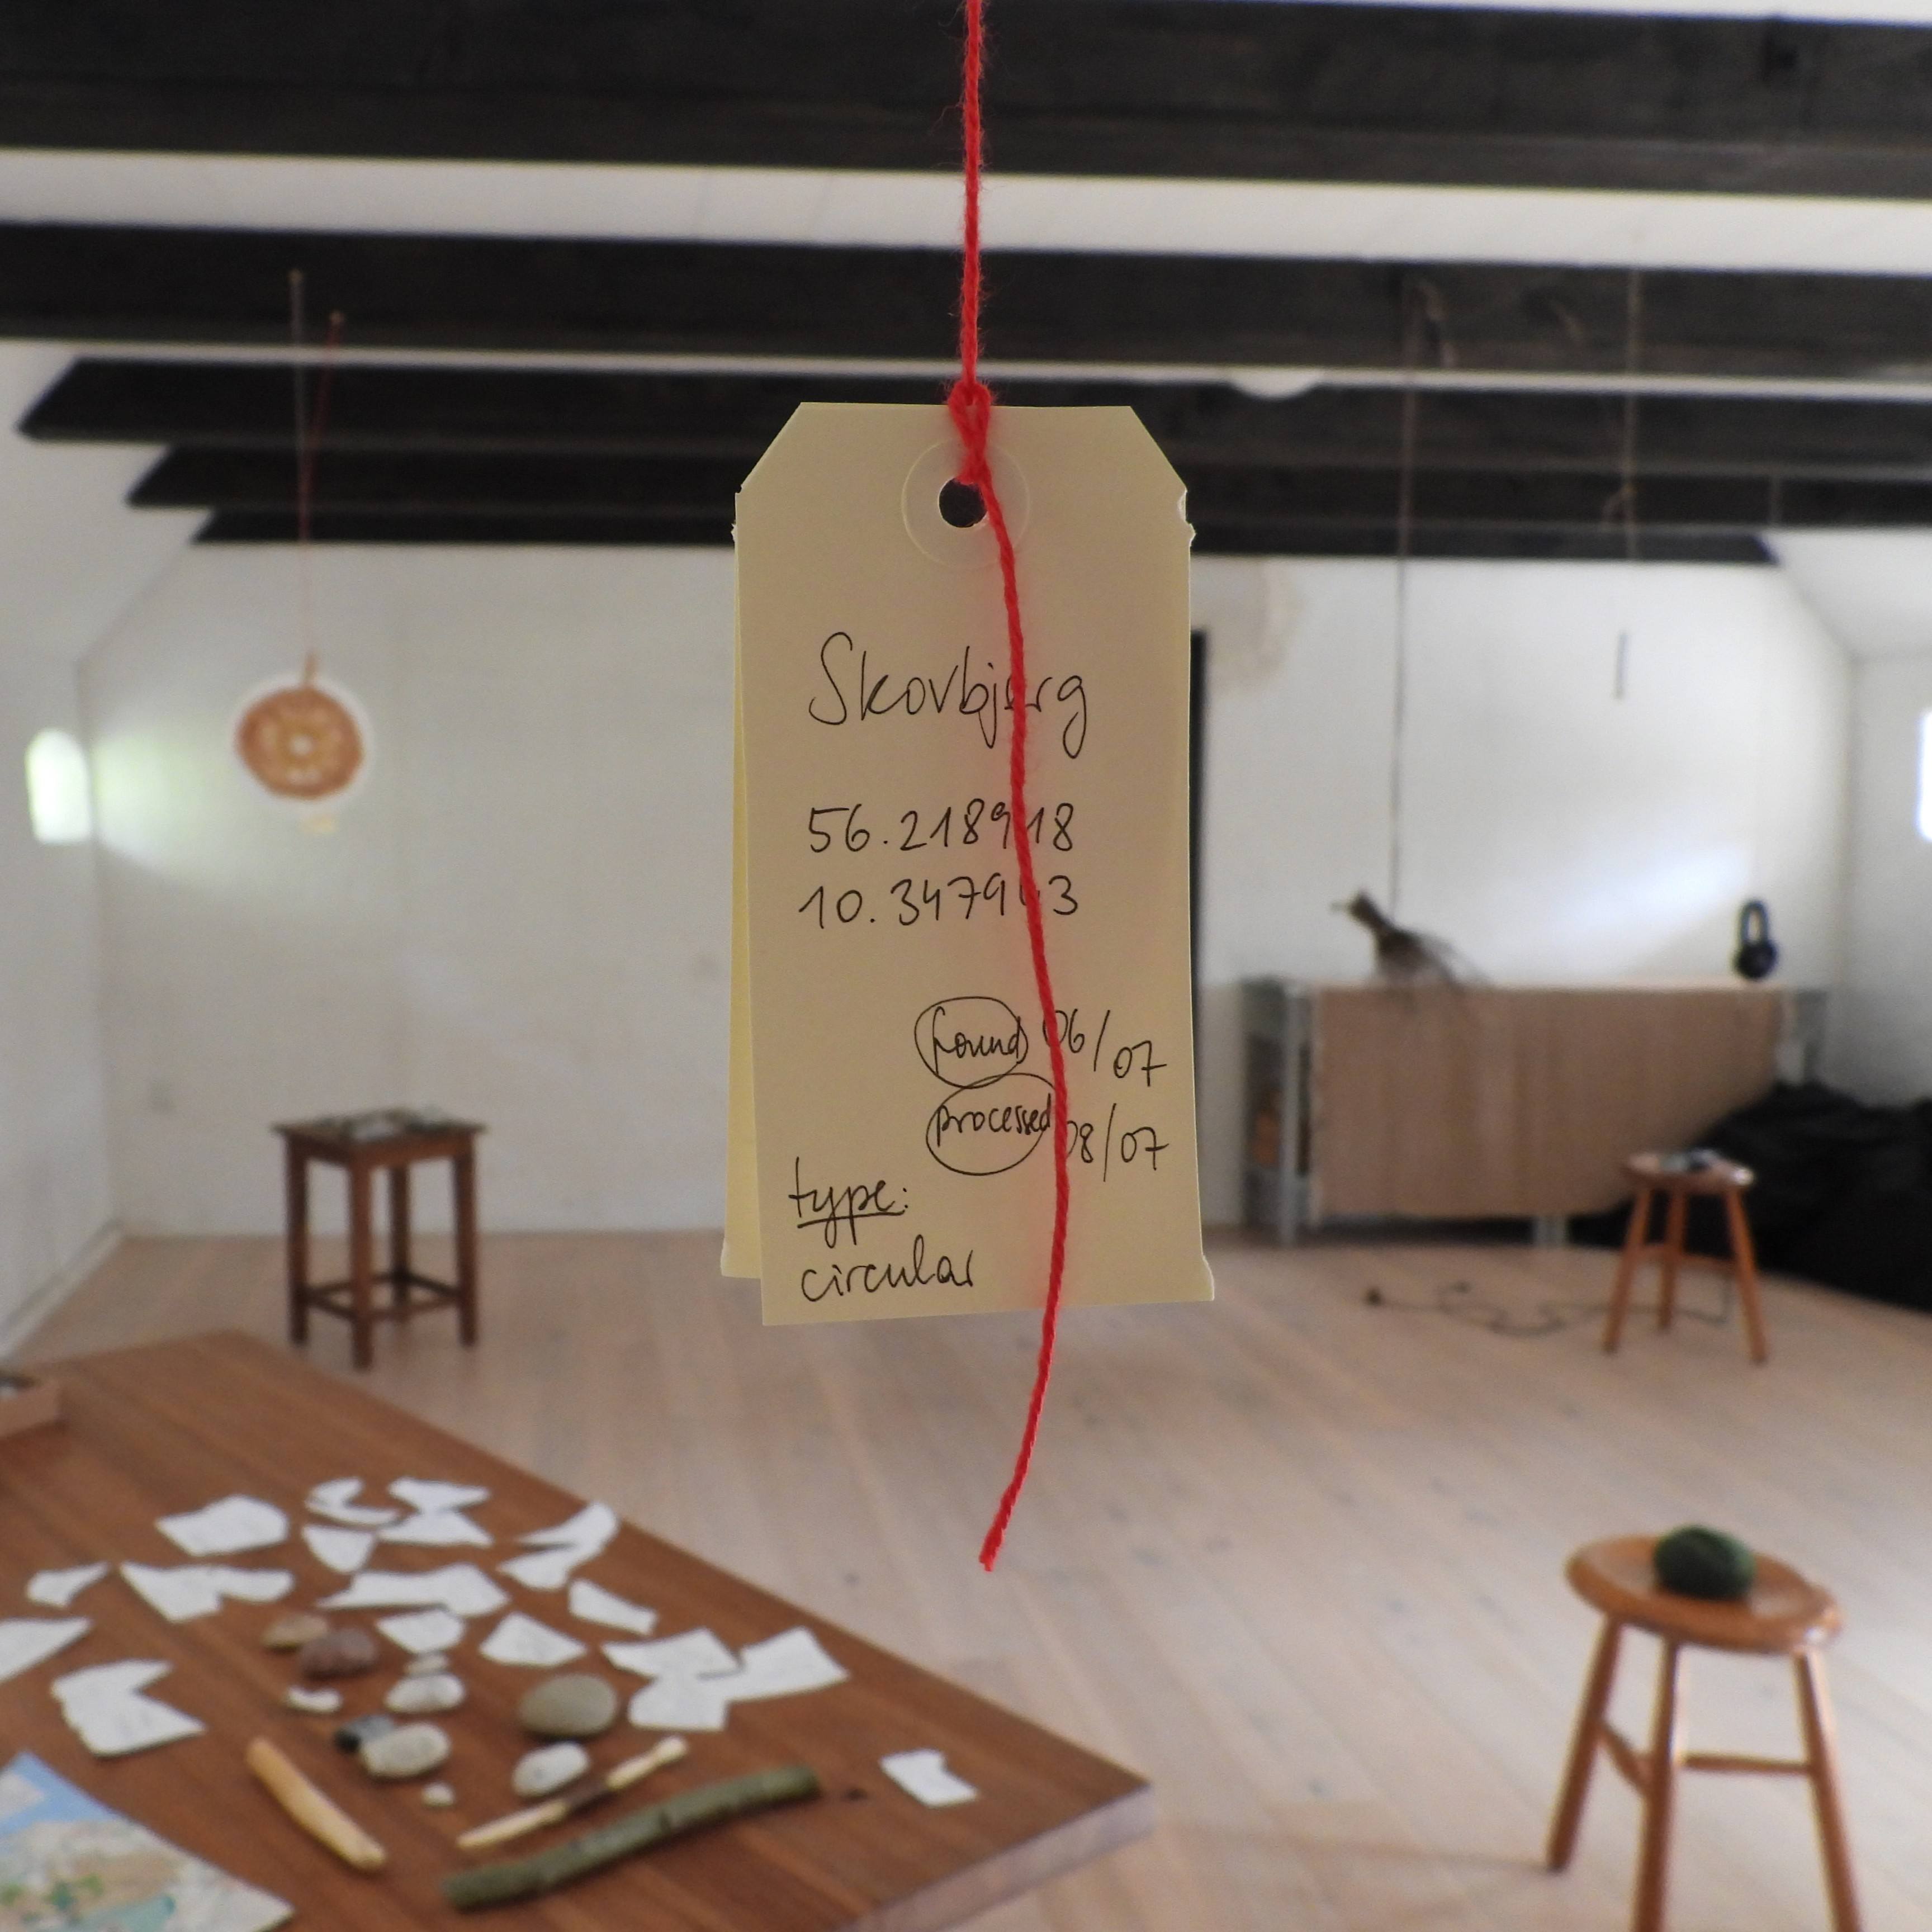 Skovbjerg
56.218918
10.347943
found 06/07
processed 08/07
type:
circular